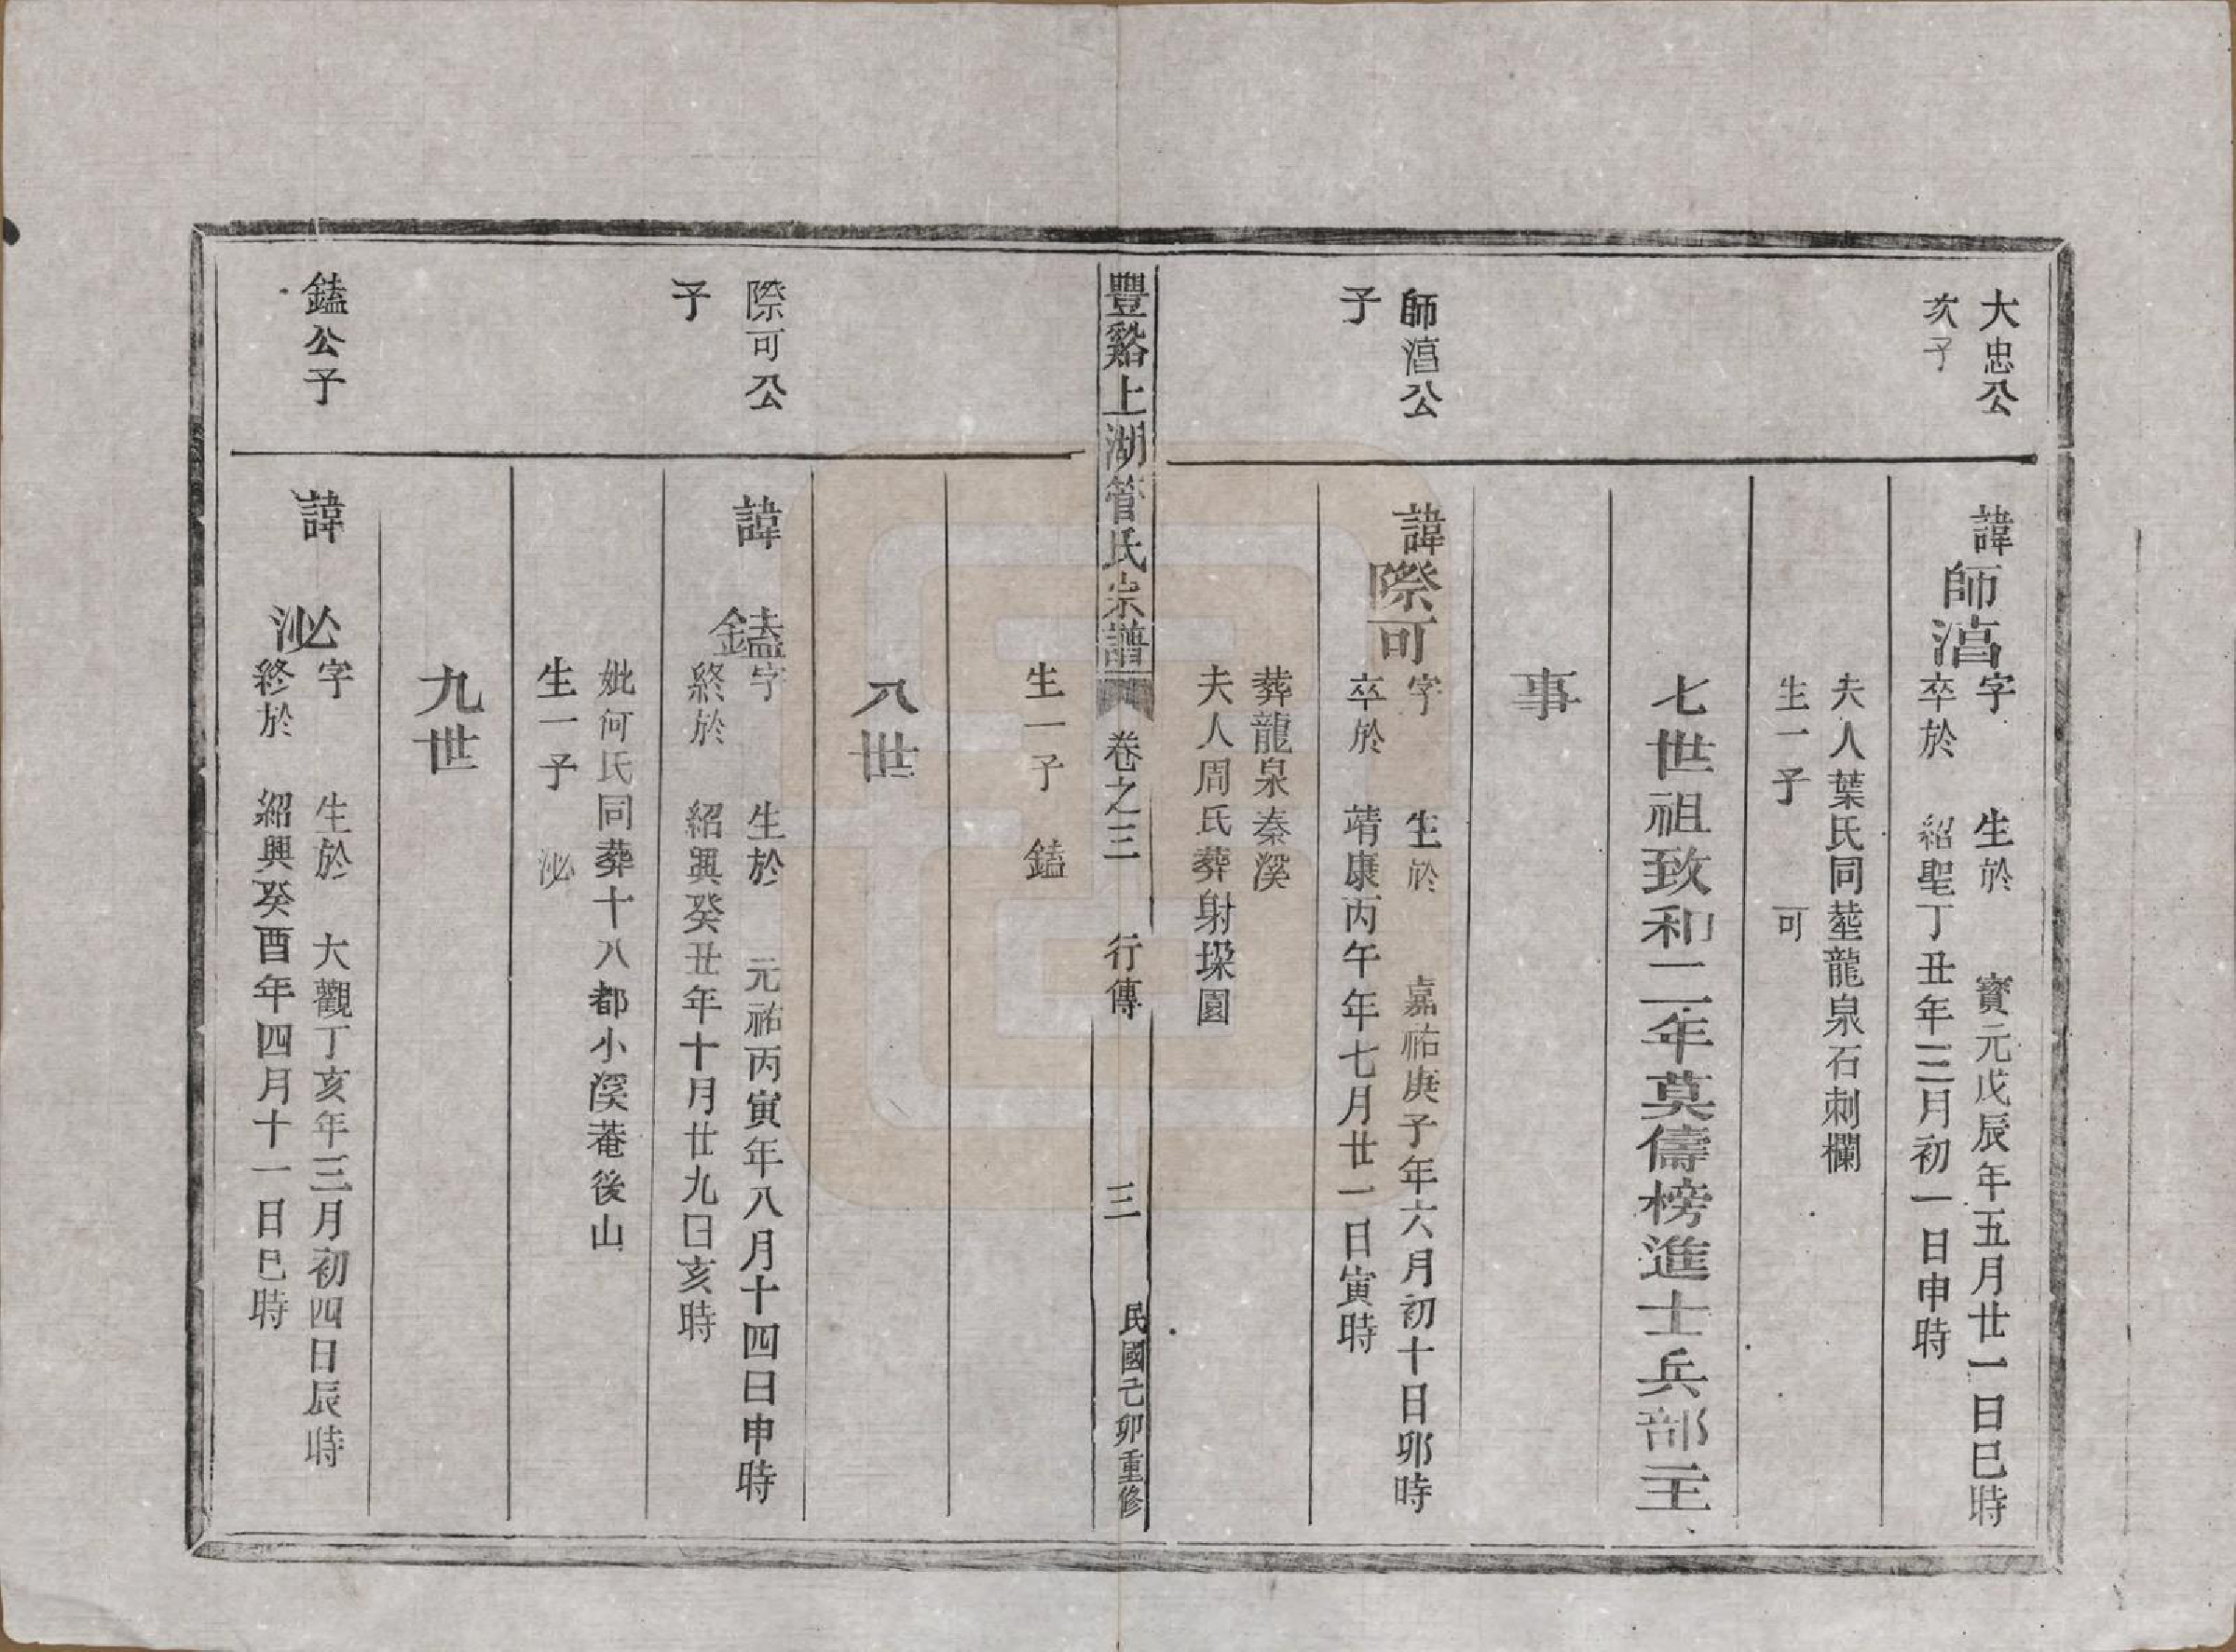 大忠公
次子
諱師渞字　生於　寶元戊辰年五月廿一日巳時
卒於　紹聖丁丑年三月初一日申時
夫人葉氏同塟龍泉石刺欄
生一子　可
七世祖致和二年莫儔榜進士兵部主
事
師渞公
子
諱際可字　生於　嘉祐庚子年六月初十日卯時
卒於　靖康丙午年七月廿一日寅時
葬龍泉秦溪
夫人周氏葬射垜園
豐谿上湖管氏宗譜　卷之三　行傳　三　民國己卯重修
生一子　鎑
八世
際可公
子
諱　鎑字　生於　元祐丙寅年八月十四日申時
終於　紹興癸丑年十月廿九日亥時
妣何氏同葬十八都小溪菴後山
生一子　泌
九世
鎑公子
諱　泌字　生於　大觀丁亥年三月初四日辰時
終於　紹興癸酉年四月十一日巳時